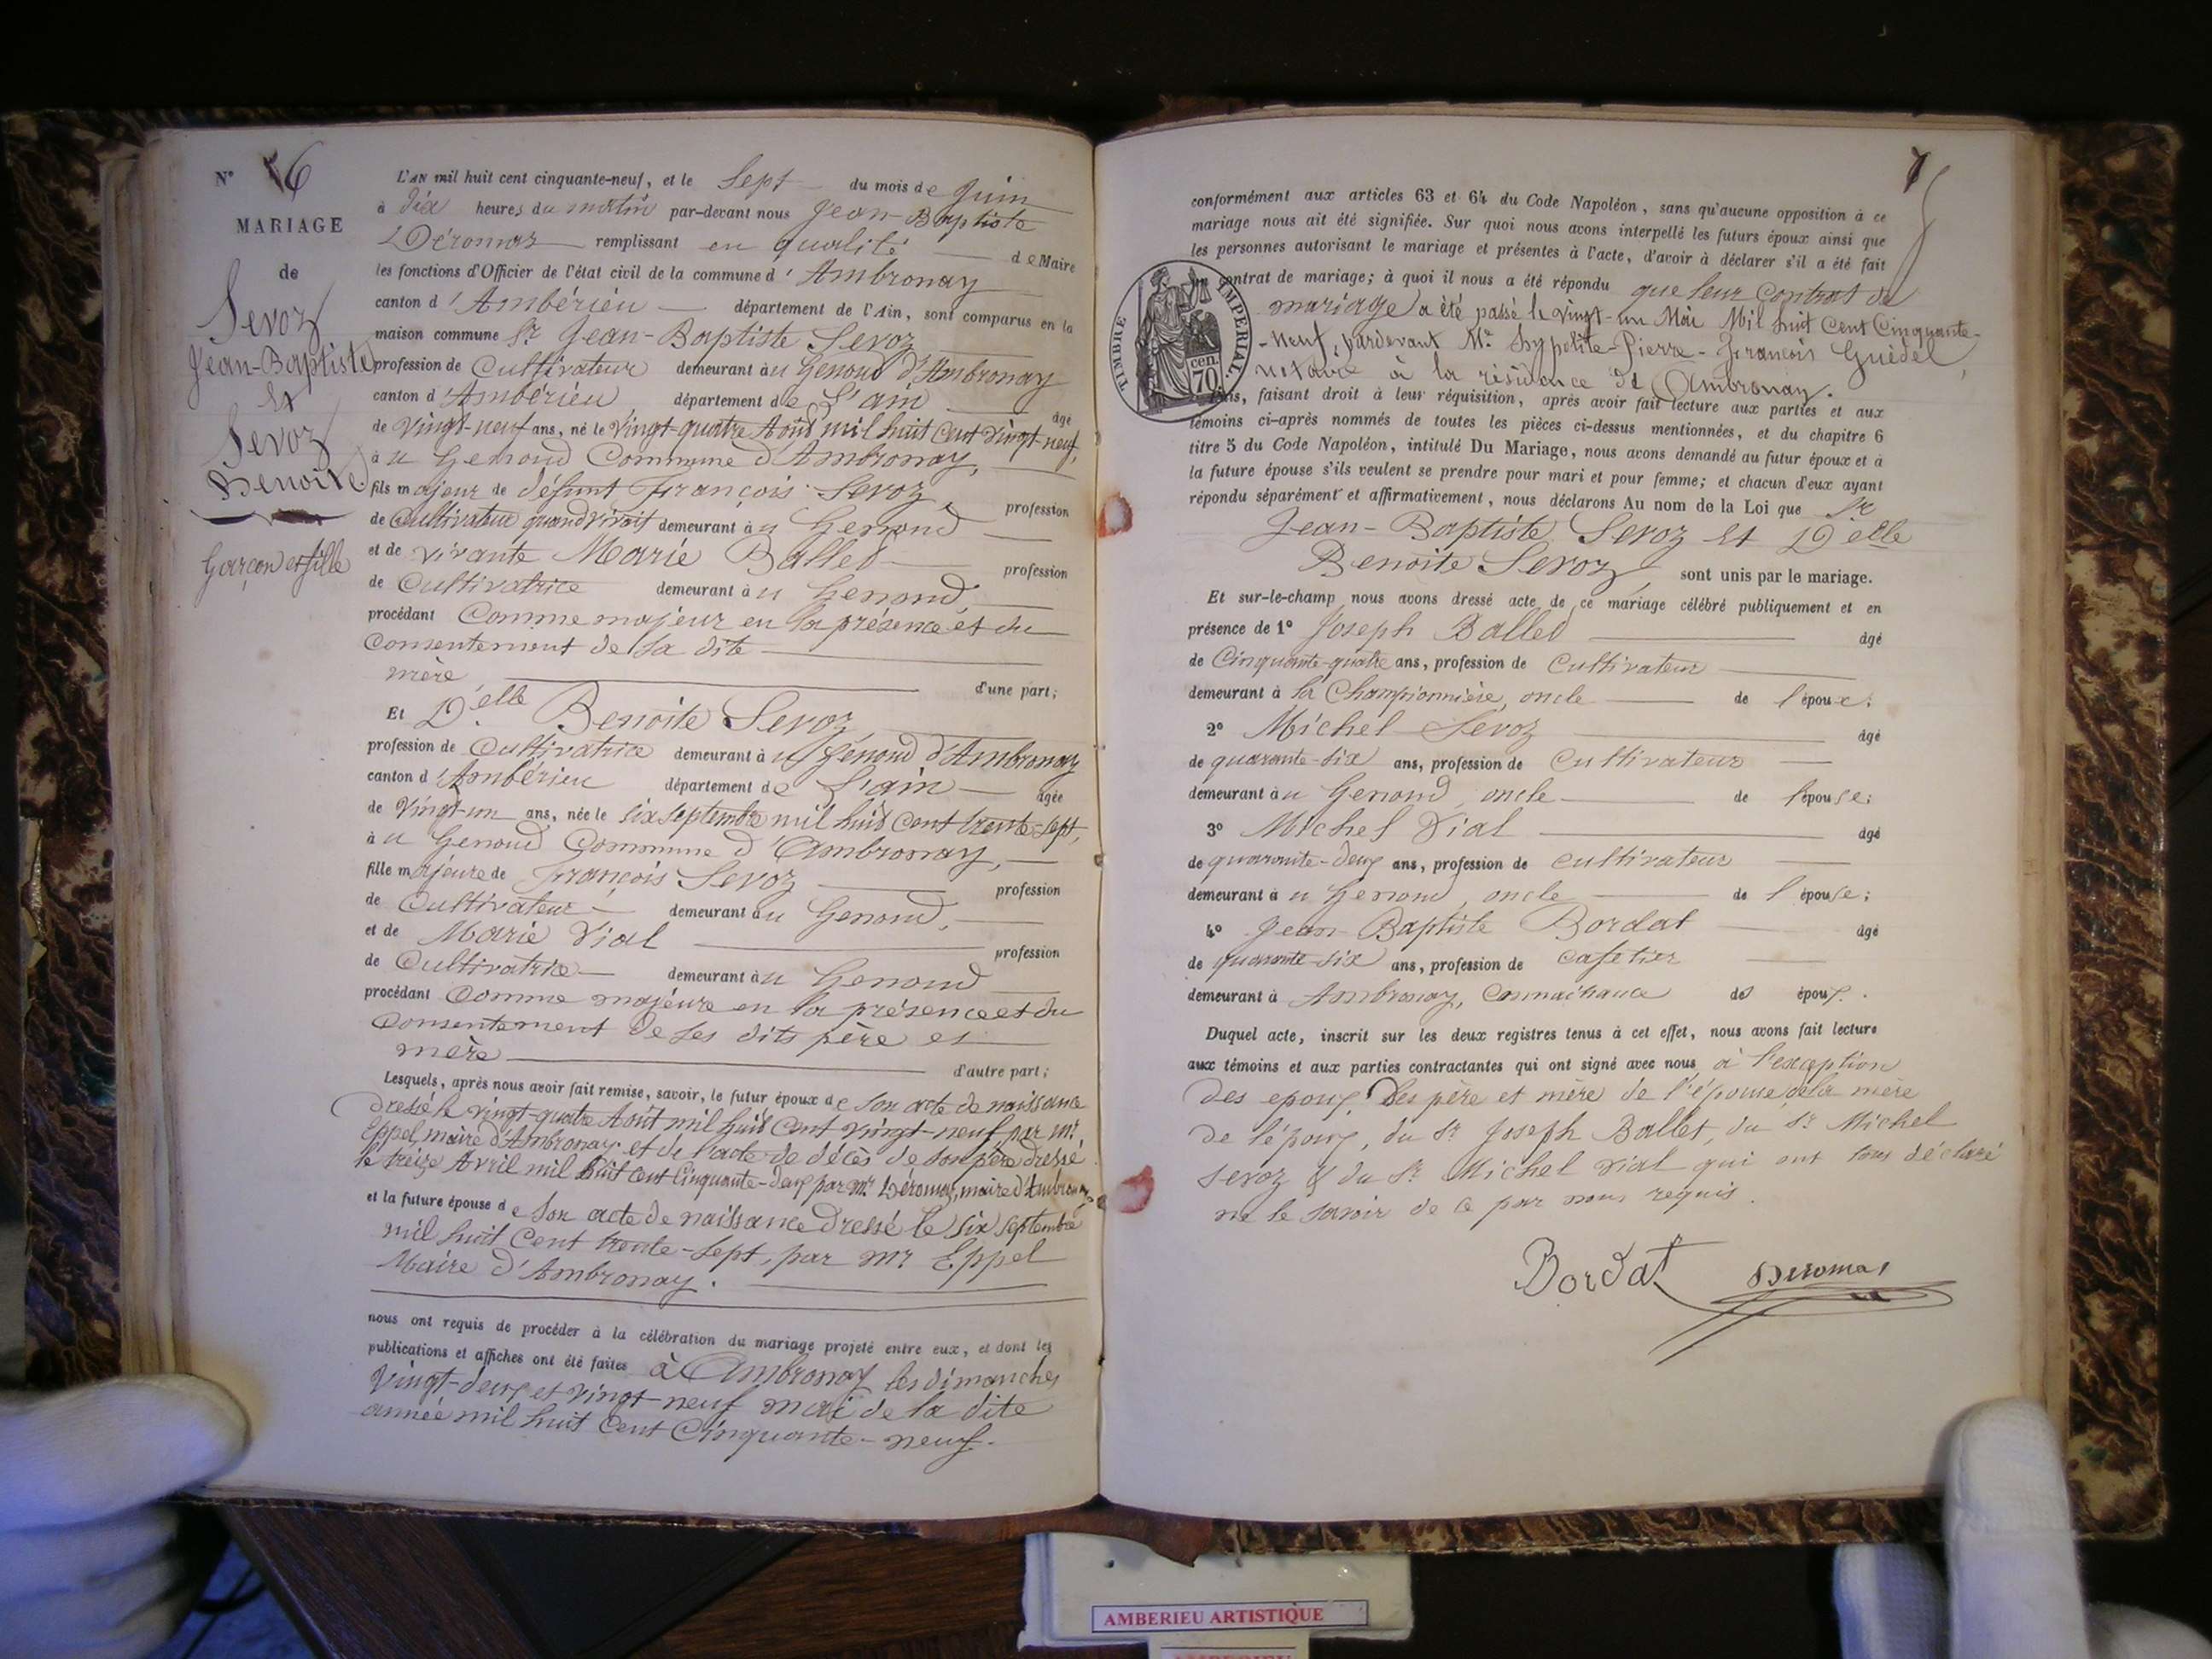 N° 6
MARIAGE
de
Sevoz
Jean-Baptiste
Et
Sevoz
Benoite
Garçon et fille
L'AN mil huit cent cinquante-neuf, et le Sept du mois de Juin
à dix heures du matin par-devant nous Jean-Baptiste
Déromas remplissant en qualité de Maire
les fonctions d'Officier de l'état civil de la commune d'Ambronay
canton d'Ambérieu département de l'Ain, sont comparus en la
maison commune Sr Jean-Baptiste Sevoz
profession de Cultivateur demeurant au Genoud d'Ambronay
canton d'Ambérieu département de L'ain âgé
de Vingt-neuf ans, né le Vingt-quatre Août mil huit Cent vingt-neuf,
au Genoud Commune d'Ambronay,
fils majeur de défunt François Sevoz profession
de Cultivateur quand vivait demeurant au Genoud
et de vivante Marie Ballet profession
de Cultivatrice demeurant au Genoud,
procédant Comme majeur en la présence et du
Consentement de sa dite
mère d'une part;
Et Delle Benoite Sevoz
profession de Cultivatrice demeurant au Genoud d'Ambronay
canton d'Ambérieu département de L'ain âgée
de Vingt-un ans, née le six septembre mil huit Cent trente-sept,
au Genoud Commune d'Ambronay,
fille majeure de François Sevoz profession
de Cultivateur demeurant au Genoud,
et de Marie Vial profession
de Cultivatrice demeurant au Genoud
procédant Comme majeure en la présence et du
Consentement de ses dits père et
mère d'autre part;
Lesquels, après nous avoir fait remise, savoir, le futur époux de son acte de naissance
dressé le vingt-quatre Août mil huit Cent vingt-neuf par Mr
Eppel, maire d'Ambronay et de l'acte de décès de son père dressé
le treize Avril mil huit Cent Cinquante-deux par Mr Déromas, maire d'Ambronay
et la future épouse de son acte de naissance dressé le six septembre
mil huit Cent trente-sept, par Mr Eppel
Maire d'Ambronay.
nous ont requis de procéder à la célébration du mariage projeté entre eux, et dont les
publications et affiches ont été faites à Ambronay les dimanches
Vingt-deux et vingt-neuf mai de la dite
année mil huit Cent Cinquante-neuf.
conformément aux articles 63 et 64 du Code Napoléon, sans qu'aucune opposition à ce
mariage nous ait été signifiée. Sur quoi nous avons interpellé les futurs époux ainsi que
les personnes autorisant le mariage et présentes à l'acte, d'avoir à déclarer s'il a été fait
contrat de mariage; à quoi il nous a été répondu que leur Contrat de
mariage a été passé le vingt-un Mai Mil huit Cent Cinquante-
-neuf, pardevant Me hypolite-Pierre-François Guédel,
notaire à la résidence de Ambronay.
TIMBRE IMPERIAL
70 cen.
faisant droit à leur réquisition, après avoir fait lecture aux parties et aux
témoins ci-après nommés de toutes les pièces ci-dessus mentionnées, et du chapitre 6
titre 5 du Code Napoléon, intitulé Du Mariage, nous avons demandé au futur époux et à
la future épouse s'ils veulent se prendre pour mari et pour femme; et chacun d'eux ayant
répondu séparément et affirmativement, nous déclarons Au nom de la Loi que Sr
Jean-Baptiste Sevoz Et Delle
Benoite Sevoz, sont unis par le mariage.
Et sur-le-champ nous avons dressé acte de ce mariage célébré publiquement et en
présence de 1° Joseph Ballet âgé
de Cinquante-quatre ans, profession de Cultivateur
demeurant à la Championnière, oncle de l'époux;
2° Michel Sevoz âgé
de quarante-six ans, profession de Cultivateur
demeurant au Genoud, oncle de l'épouse;
3° Michel Vial âgé
de quarante-deux ans, profession de Cultivateur
demeurant au Genoud, oncle de l'épouse;
4° Jean-Baptiste Bordat âgé
de quarante-six ans, profession de Cafetier
demeurant à Ambronay, Connaissance des époux.
Duquel acte, inscrit sur les deux registres tenus à cet effet, nous avons fait lecture
aux témoins et aux parties contractantes qui ont signé avec nous à l'exception
des epoux, des père et mère de l'épouse, de la mère
de l'époux, du Sr Joseph Ballet, du Sr Michel
Sevoz & du Sr Michel Vial qui ont tous déclaré
ne le savoir de ce par nous requis.
Bordat Deromas
AMBERIEU ARTISTIQUE
AMBERIEU